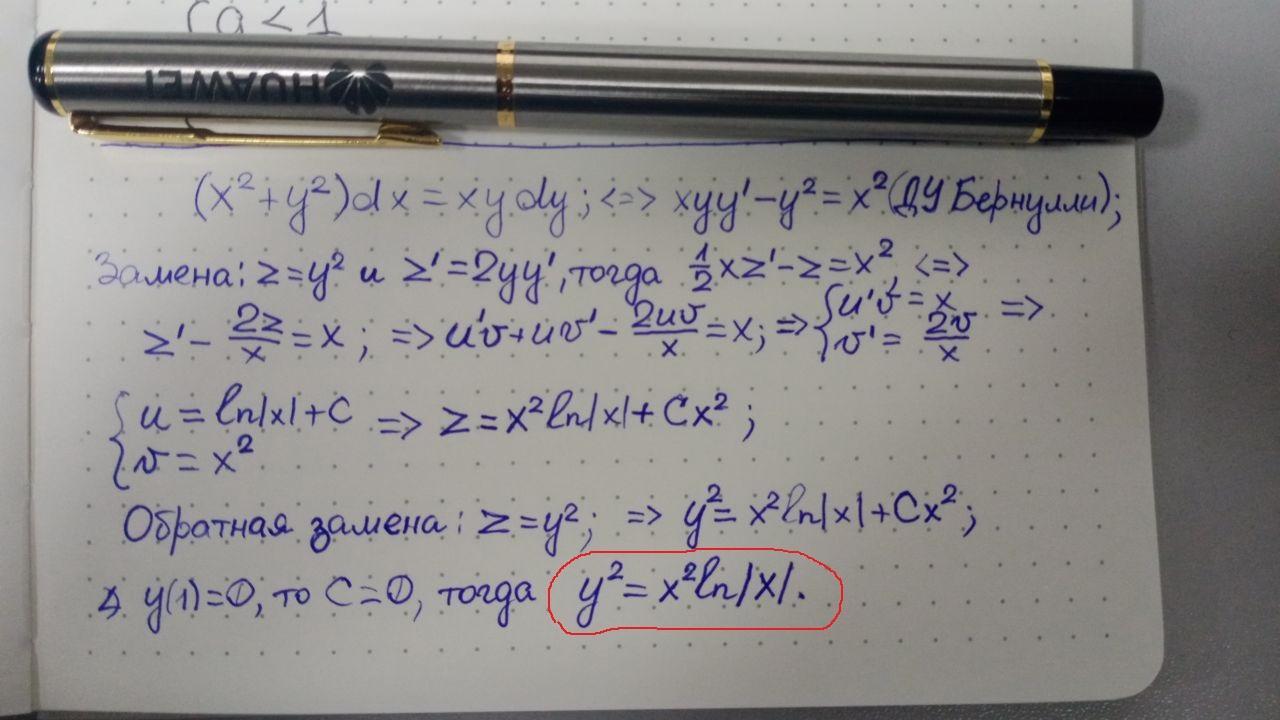 Ca < 1
HUAWEI
(x²+y²)dx = xydy; <=> xyy' - y² = x² (ДУ Бернулли);
Замена: z=y² и z'=2yy', тогда 1/2xz' - z = x², <=>
z' - 2z/x = x; => u'v+uv' - 2uv/x = x; => {u'v = x =>
v' = 2v/x
{u = ln|x|+C => z = x²ln|x|+Cx²;
v = x²
Обратная замена: z=y²; => y² = x²ln|x|+Cx²;
y(1)=0, то C=0, тогда y² = x²ln|x|.